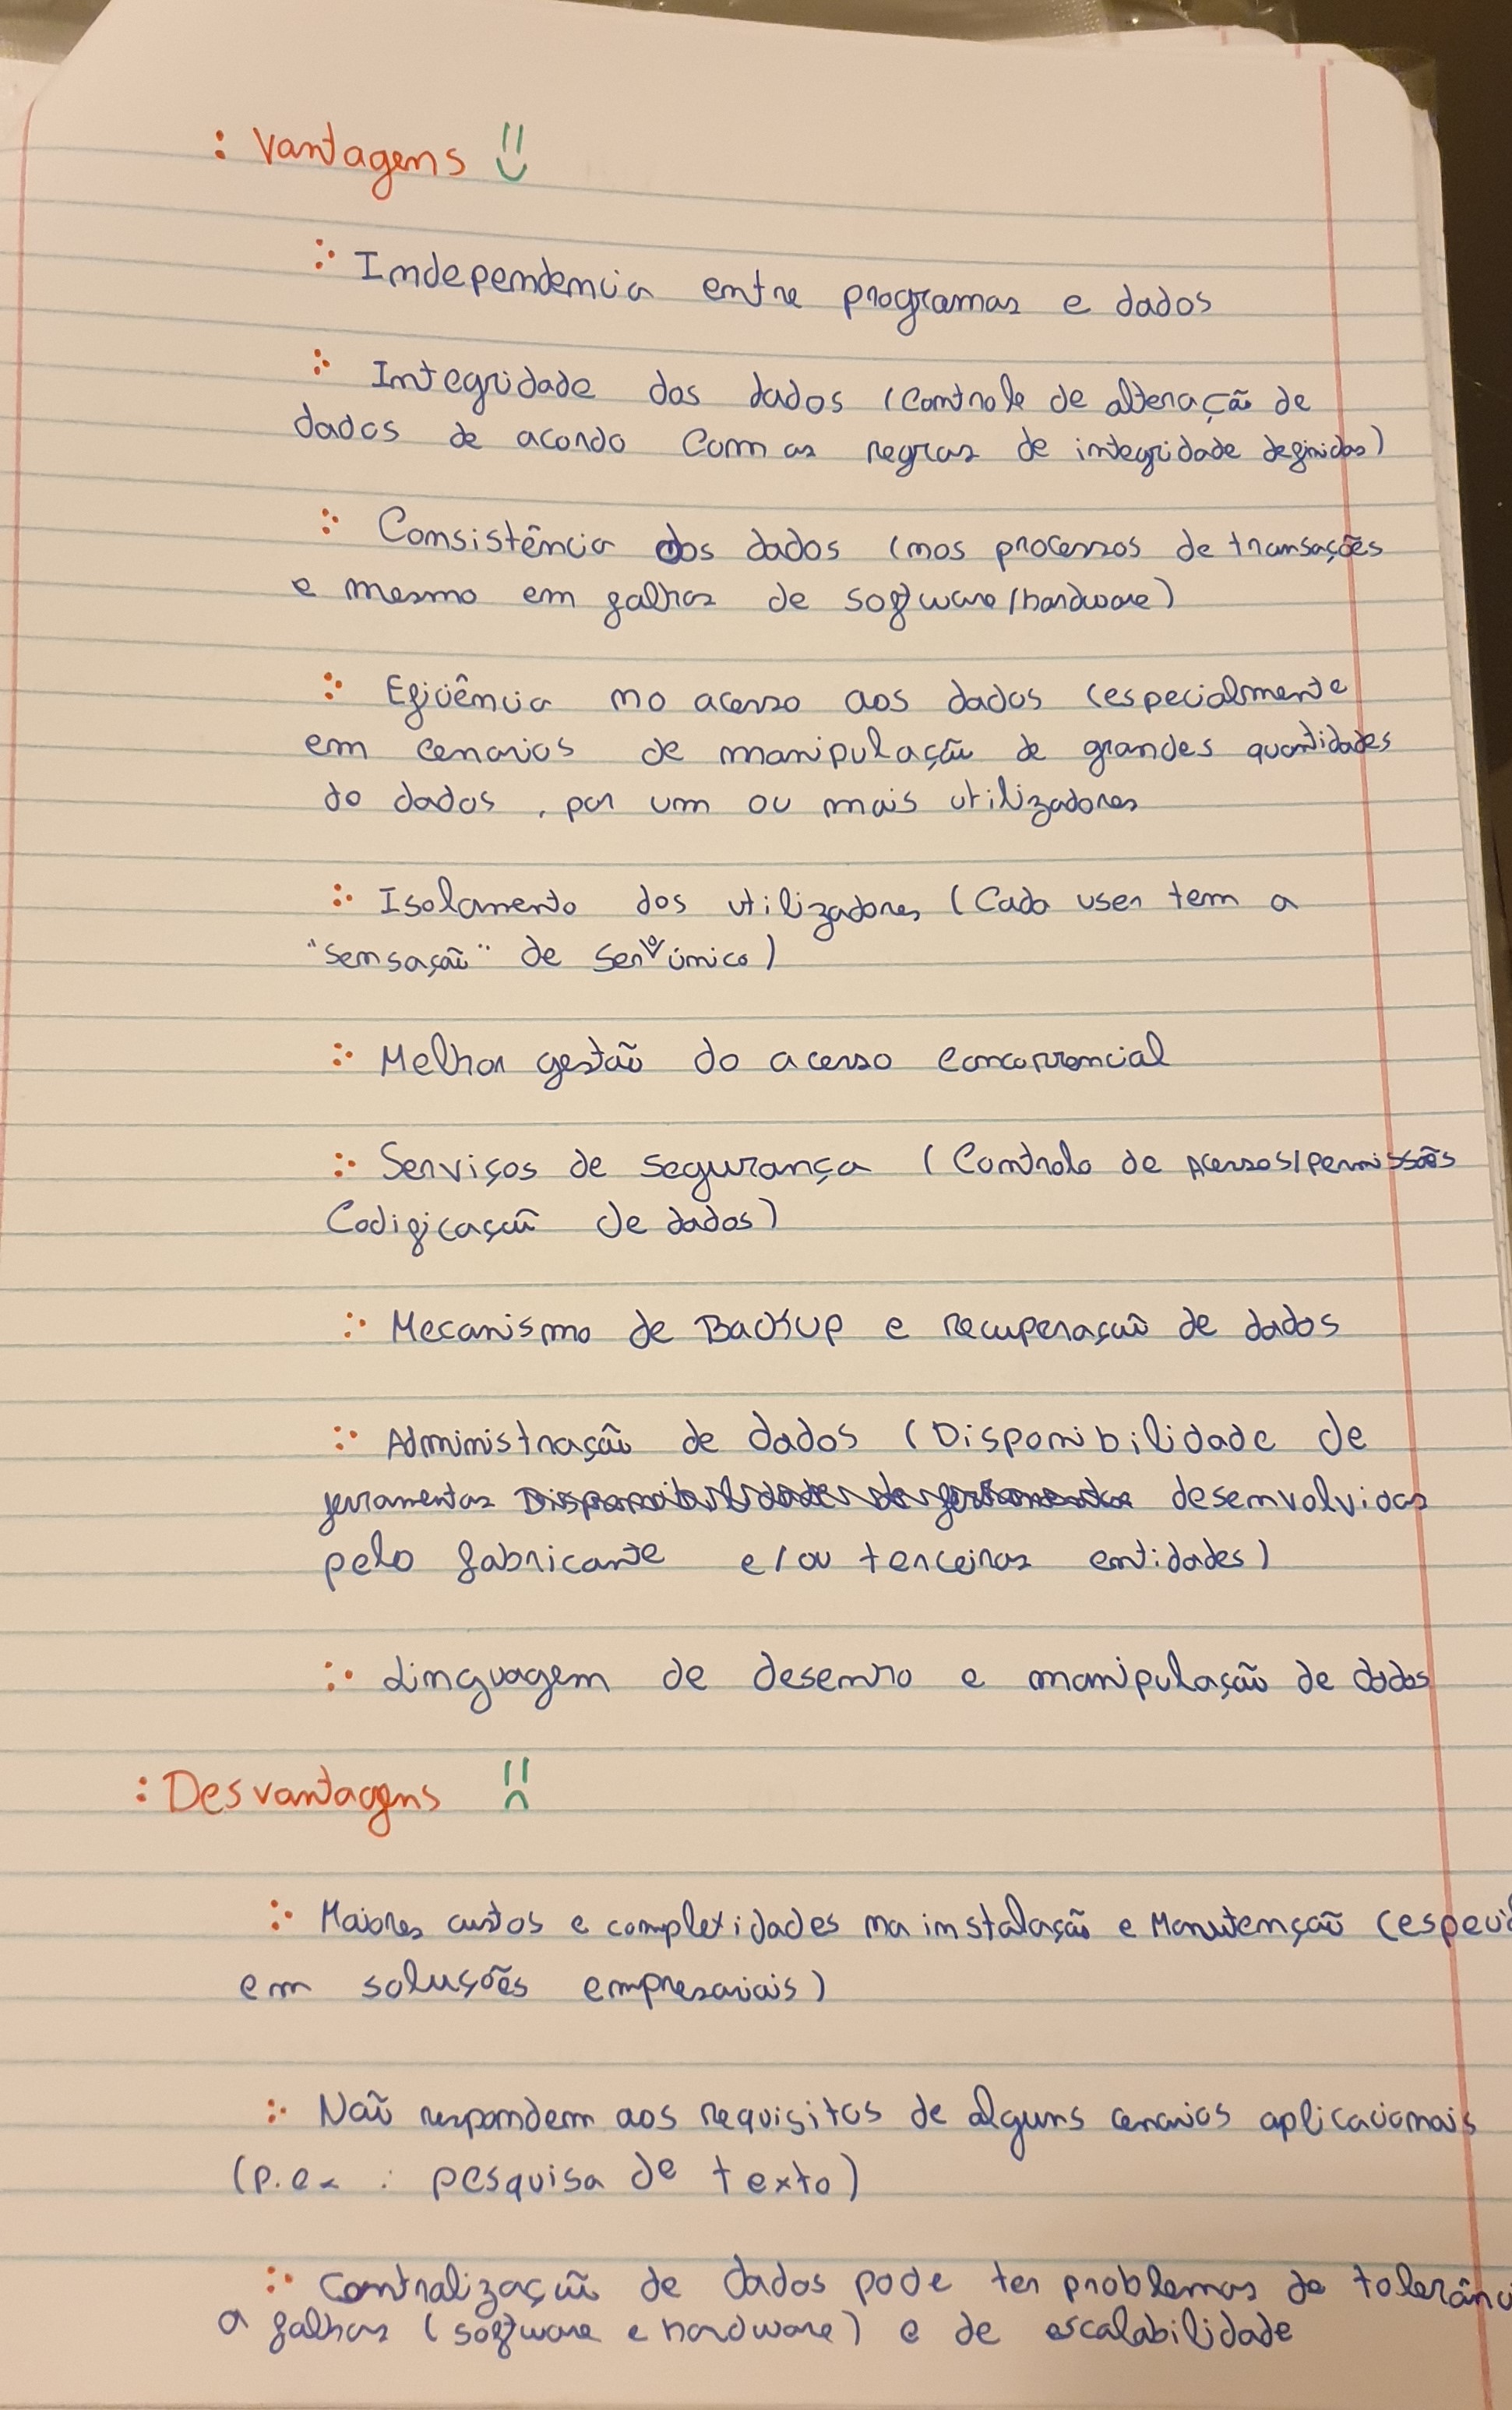 : Vantagens
Independencia entre programas e dados
Integridade dos dados (Controle de alteração de
dados de acordo com as regras de integridade definidas)
Consistência dos dados (nos processos de transações
e mesmo em falhas de software/hardware)
Eficiência no acesso aos dados (especialmente
em cenarios de manipulação de grandes quantidades
do dados, por um ou mais utilizadores
Isolamento dos utilizadores (Cada user tem a
"sensação" de ser o único)
Melhor gestão do acesso concorrencial
Serviços de segurança (Controlo de Acessos/permissões
Codificação de dados)
Mecanismo de Backup e recuperação de dados
Administração de dados (Disponibilidade de
ferramentas desenvolvidas
pelo fabricante e/ou terceiras entidades)
Linguagem de desenho e manipulação de dados
: Desvantagens
Maiores custos e complexidades na instalação e Manutenção (especia
em soluções empresariais)
Não respondem aos requisitos de alguns cenarios aplicacionais
(p.ex : pesquisa de texto)
Centralização de dados pode ter problemas de tolerânci
a falhas (software e hardware) e de escalabilidade